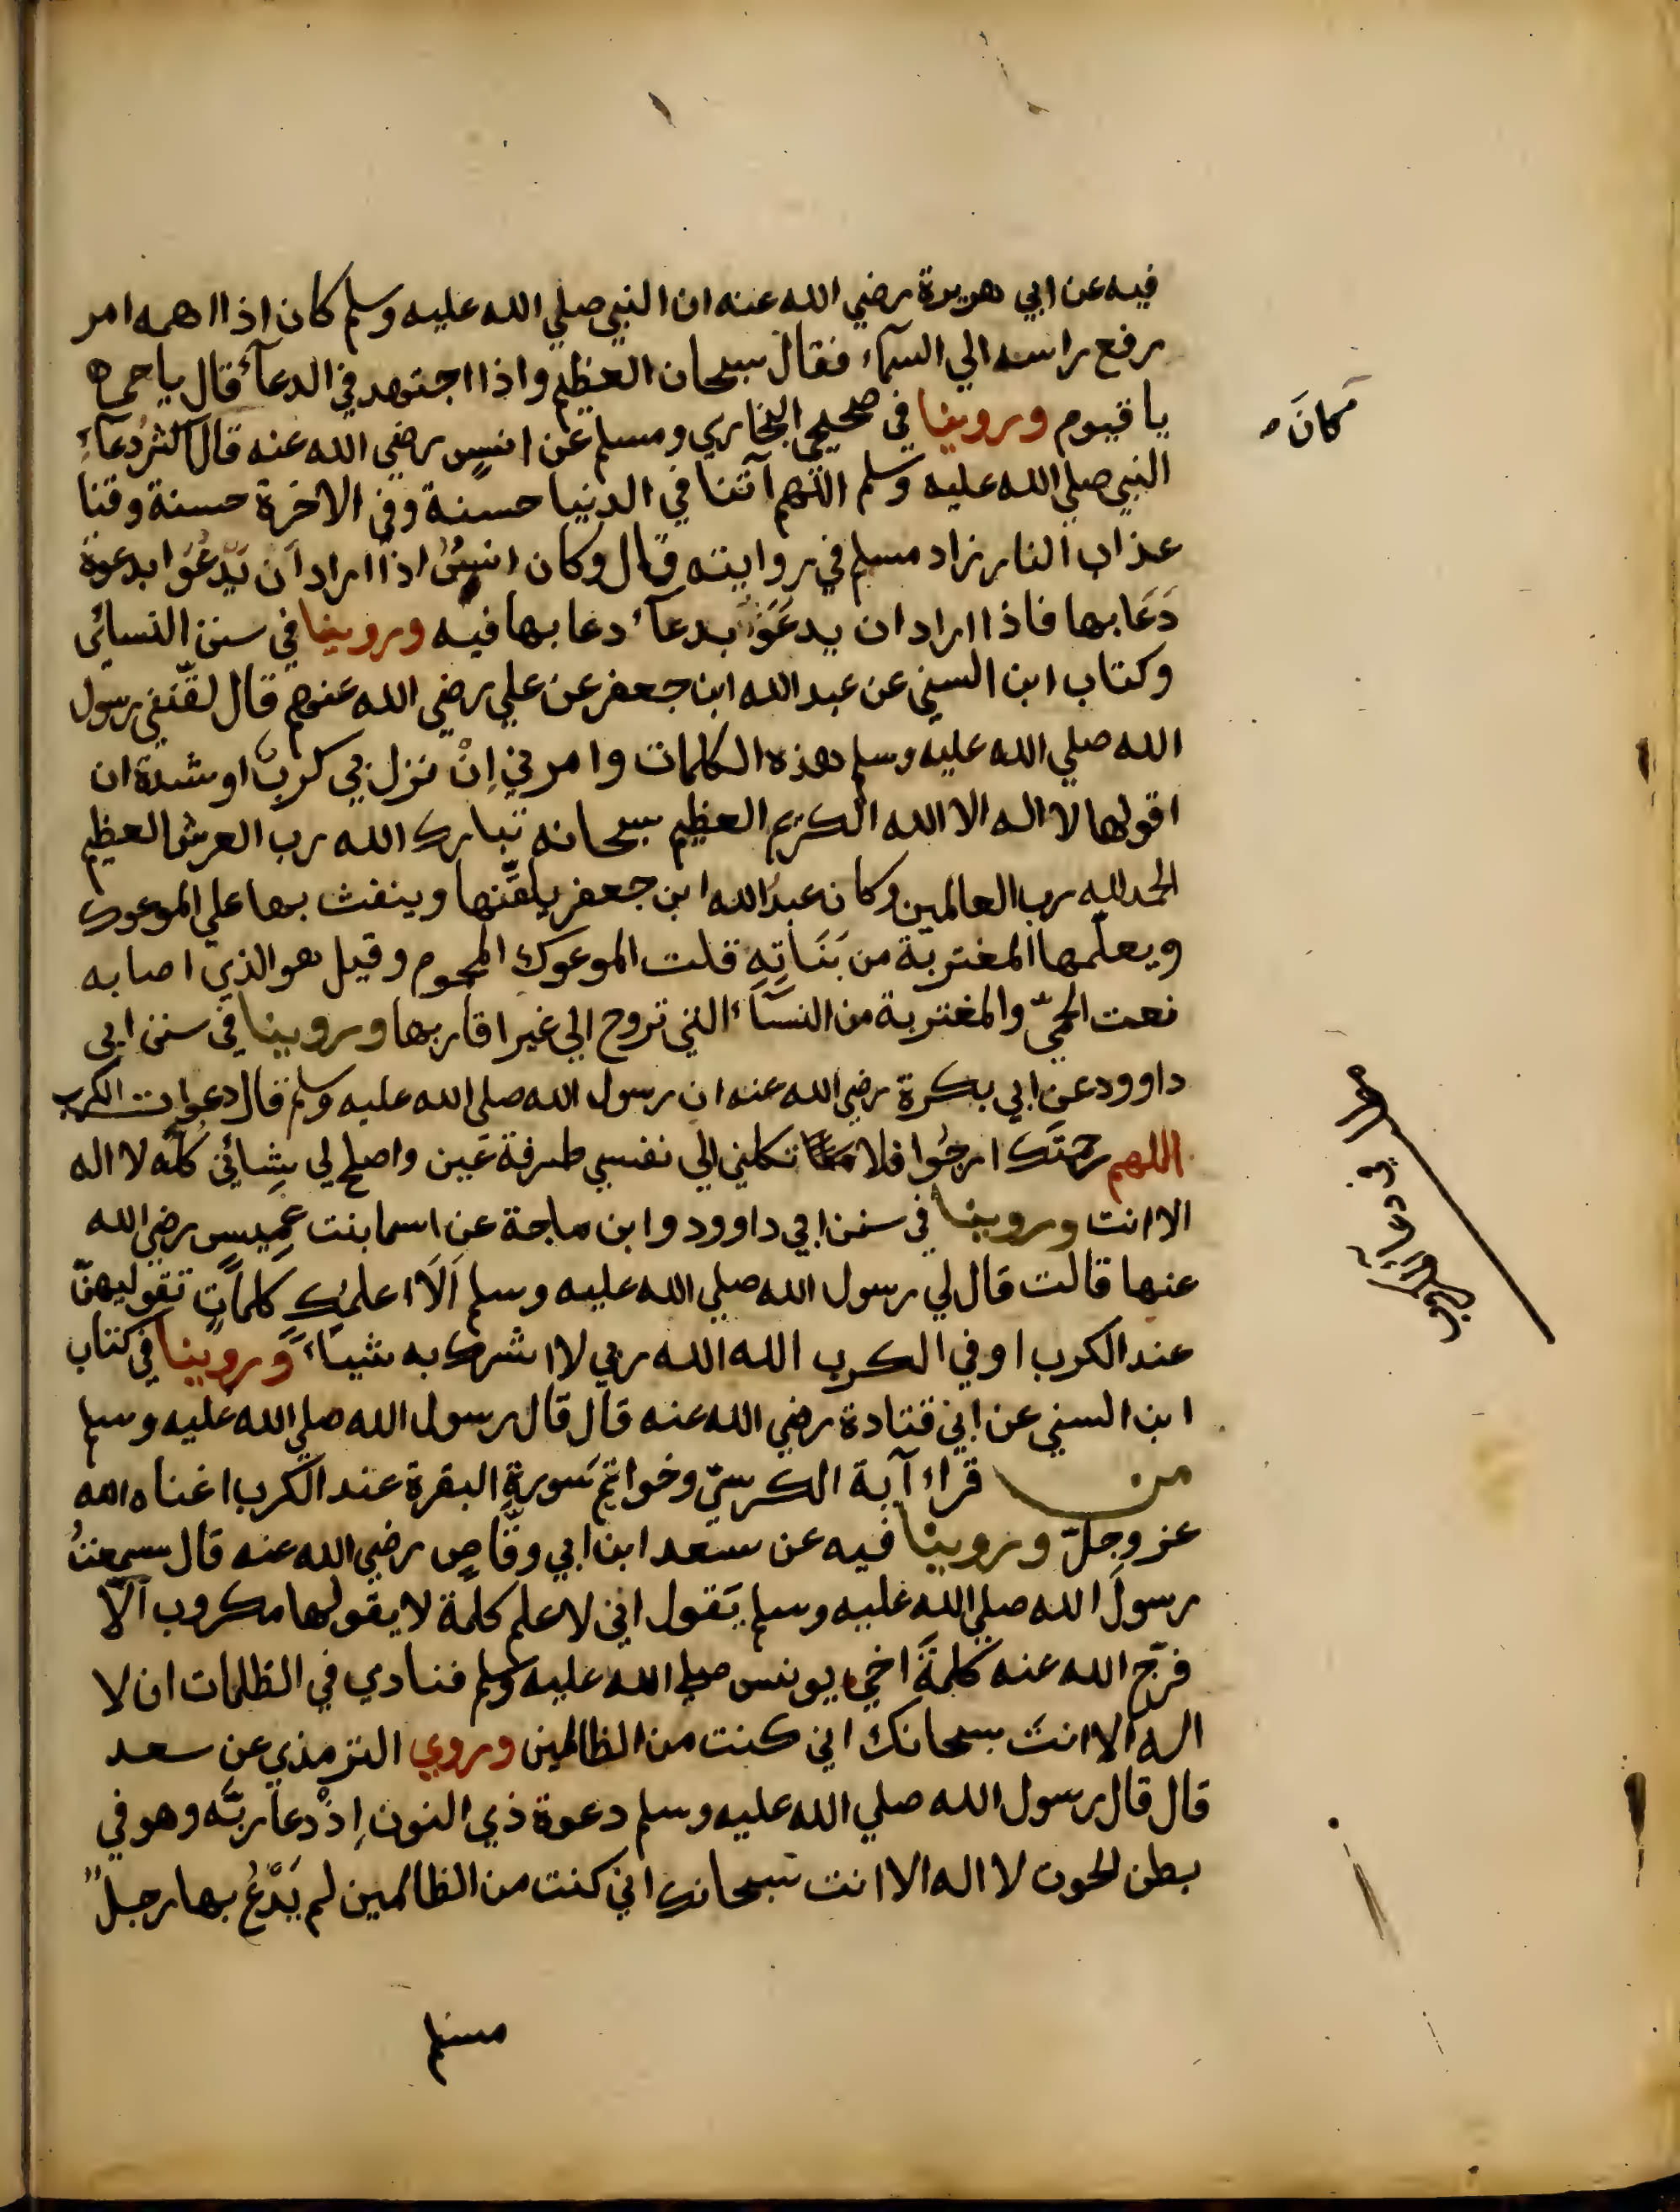 فيه عن ابي هريرة رضي الله عنه ان النبي صلي الله عليه وسلم كان اذا اهمه امر
رفع راسه الي السمآء فقال سبحان العظيم واذا اجتهد في الدعآء قال ياحي
يا قيوم وروينا في صحيحي البخاري ومسلم عن انسٍ رضي الله عنه قال اكثر دعآءِ
كانَ
النبي صلي الله عليه وسلم اللهم آتنا في الدنيا حسنة وفي الاخرة حسنة وقنا
عذاب النار زاد مسلم في روايته قال وكان انسٌ اذا اراد أن يَدْعُوَا بدعوة
دَعَا بها فاذا اراد ان يدعَوَا بدعآء دعا بها فيه وروينا في سنن النسائي
وكتاب ابن السني عن عبد الله ابن جعفر عن علي رضي الله عنهم قال لقّنني رسول
الله صلي الله عليه وسلم هذه الكلمات وامرني اِنْ نزل بي كربٌ او شدة ان
اقولها لا اله الا الله الكريم العظيم سبحانه تبارك الله رب العرش العظيم
الحمد لله رب العالمين وكان عبدُ الله ابن جعفر يلقّنها وينفث بها علي الموعوك
ويعلّمها المغتربة من بَنَاتِهِ قلت الموعوك المحموم وقيل هو الذي اصابه
نعت الحمّي والمغتربة من النسآء التي تزوج الي غير اقاربها وروينا في سنن ابي
داوود عن ابي بكرة رضي الله عنه ان رسول الله صلي الله عليه وسلم قال دعوات الكرب
اللهم رحمتَك ارجُوا فلا تكلني الي نفسي طرفة عَين واصلح لي شِائني كلّه لا اله
الا انت وروينا في سنن ابي داوود وابن ماجة عن اسما بنت عُميس رضي الله
عنها قالت قال لي رسول الله صلي الله عليه وسلم اَلَا اعلمكِ كلماتٍ تقوليهنّ
عند الكرب او في الكرب الله الله ربي لا اشرك به شياءً وروينا في كتاب
ابن السني عن ابي قتادة رضي الله عنه قال قال رسول الله صلي الله عليه وسلم
من قراء آية الكرسيّ وخواتم سورةِ البقرة عند الكرب اغناه الله
عز وجلّ وروينا فيه عن سعد ابن ابي وقّاصٍ رضي الله عنه قال سمعتُ
رسولَ الله صلي الله عليه وسلم يَقول اني لاعلم كلمة لا يقولها مكروب اَلّا
فرّج الله عنه كلمةَ اخي يونس صلي الله عليه وسلم فنادي في الظلمات ان لا
اله الا انتَ سبحانك اني كنت من الظالمين وروي الترمذي عن سعد
قال قال رسول الله صلي الله عليه وسلم دعوة ذي النون اِذْ دعا ربّه وهو في
بطن الحوت لا اله الا انت سبحانك اني كنت من الظالمين لم يَدْعُ بها رجلٌ
مسلم